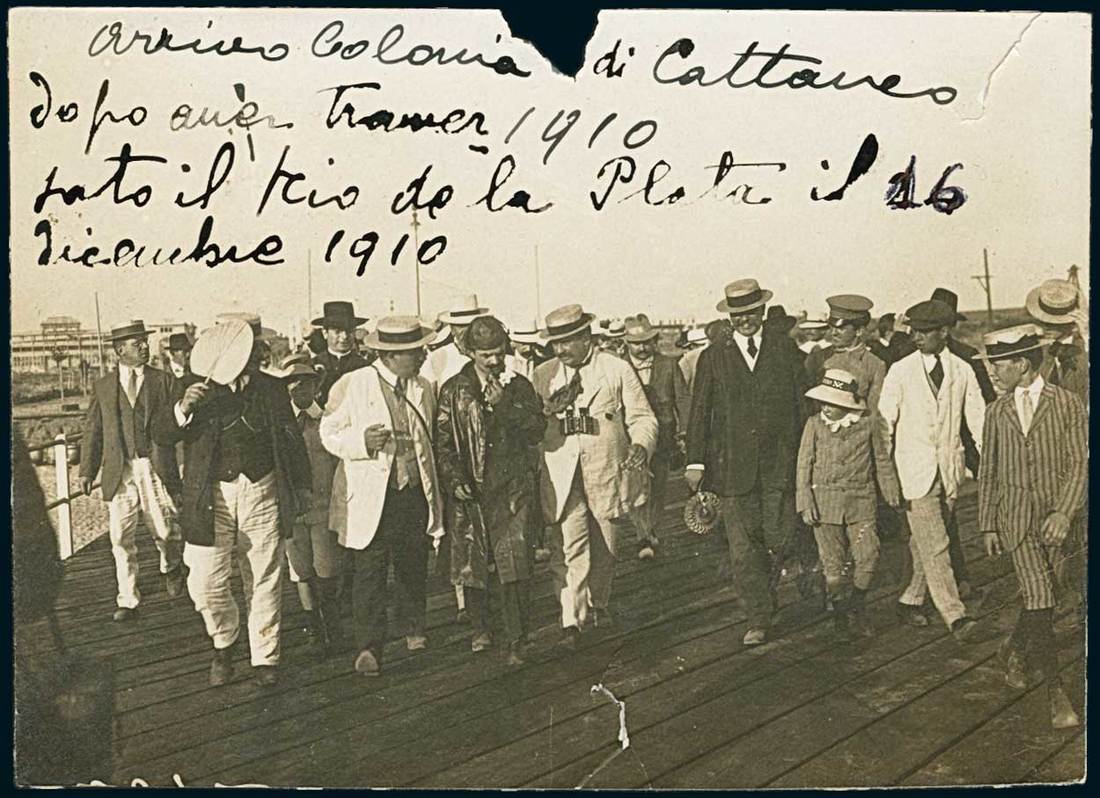 Arrivo Colonia di Cattaneo
dopo aver Traver 1910
sato il Rio de la Plata il 16
Dicembre 1910